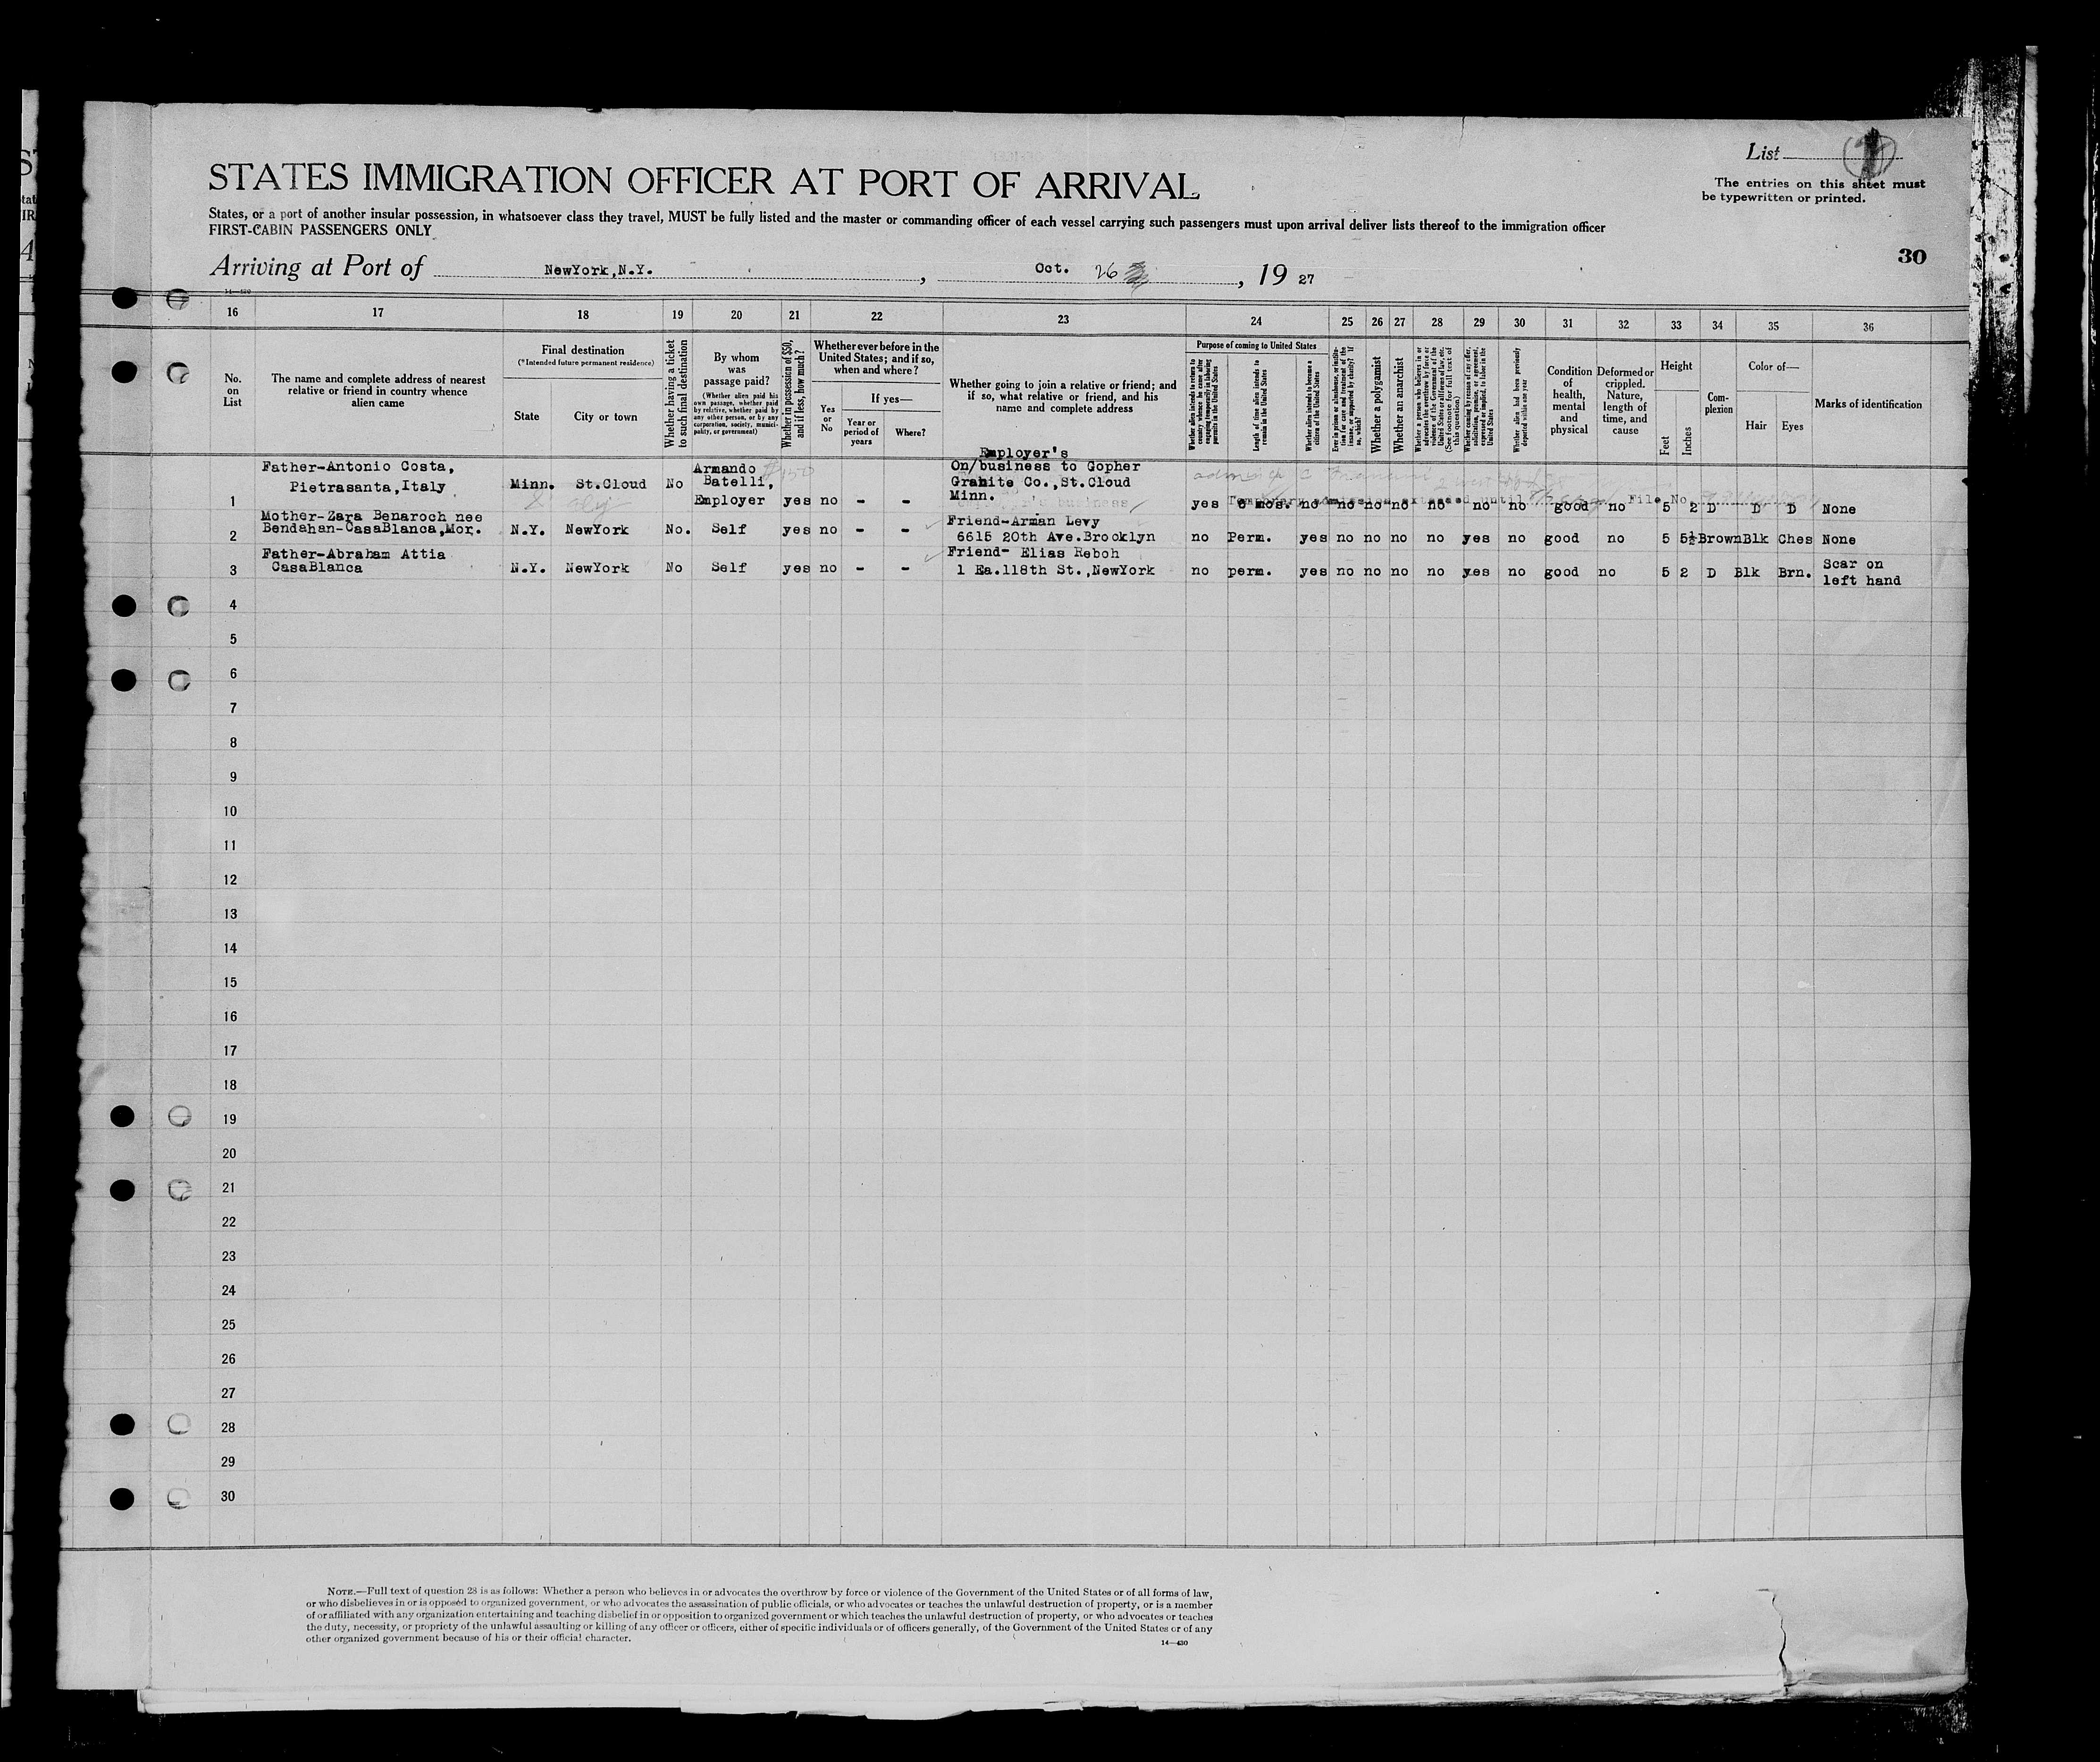 List
STATES IMMIGRATION OFFICER AT PORT OF ARRIVAL
The entries on this sheet must
be typewritten or printed.
States, or a port of another insular possession, in whatsoever class they travel, MUST be fully listed and the master or commanding officer of each vessel carrying such passengers must upon arrival deliver lists thereof to the immigration officer
FIRST-CABIN PASSENGERS ONLY
30
Arriving at Port of NewYork,N.Y., Oct. 26, 19 27
14—430
16 17 18 19 20 21 22 23 24 25 26 27 28 29 30 31 32 33 34 35 36
No.
on
List
The name and complete address of nearest
relative or friend in country whence
alien came
Final destination
(*Intended future permanent residence)
State
City or town
Whether having a ticket
to such final destination
By whom
was
passage paid?
(Whether alien paid his
own passage, whether paid
by relative, whether paid by
any other person, or by any
corporation, society, munici-
pality, or government)
Whether in possession of $50,
and if less, how much?
Whether ever before in the
United States; and if so,
when and where?
Yes
or
No
If yes—
Year or
period of
years
Where?
Whether going to join a relative or friend; and
if so, what relative or friend, and his
name and complete address
Purpose of coming to United States
Whether alien intends to return to
country whence he came after
engaging temporarily in laboring
pursuits in the United States
Length of time alien intends to
remain in the United States
Whether alien intends to become a
citizen of the United States
Ever in prison or almshouse, or institu-
tion for care and treatment of the
insane, or supported by charity? If
so, which?
Whether a polygamist
Whether an anarchist
Whether a person who believes in or
advocates the overthrow by force or
violence of the Government of the
United States or all forms of law, etc.
(See footnote for full text of
this question.)
Whether coming by reason of any offer,
solicitation, promise, or agreement,
expressed or implied, to labor in the
United States
Whether alien had been previously
deported within one year
Condition
of
health,
mental
and
physical
Deformed or
crippled.
Nature,
length of
time, and
cause
Height
Feet
Inches
Com-
plexion
Color of—
Hair
Eyes
Marks of identification
Employer's
Father-Antonio Costa, Armando On/business to Gopher
Pietrasanta,Italy Minn. St.Cloud No Batelli, Granite Co.,St.Cloud
1 Employer yes no - - Minn. yes 6 mos. no no no no no no no good no 5 2 D D D None
Temporary admission extended until File No.
Mother-Zara Benaroch nee Friend-Arman Levy
2 Bendahan-CasaBlanca,Mor. N.Y. NewYork No. Self yes no - - 6615 20th Ave.Brooklyn no Perm. yes no no no no yes no good no 5 5½ Brown Blk Ches None
Father-Abraham Attia Friend- Elias Reboh
3 CasaBlanca N.Y. NewYork No Self yes no - - 1 Ea.118th St.,NewYork no perm. yes no no no no yes no good no 5 2 D Blk Brn. Scar on
left hand
4
5
6
7
8
9
10
11
12
13
14
15
16
17
18
19
20
21
22
23
24
25
26
27
28
29
30
NOTE.—Full text of question 28 is as follows: Whether a person who believes in or advocates the overthrow by force or violence of the Government of the United States or of all forms of law,
or who disbelieves in or is opposed to organized government, or who advocates the assassination of public officials, or who advocates or teaches the unlawful destruction of property, or is a member
of or affiliated with any organization entertaining and teaching disbelief in or opposition to organized government or which teaches the unlawful destruction of property, or who advocates or teaches
the duty, necessity, or propriety of the unlawful assaulting or killing of any officer or officers, either of specific individuals or of officers generally, of the Government of the United States or of any
other organized government because of his or their official character.
14—430